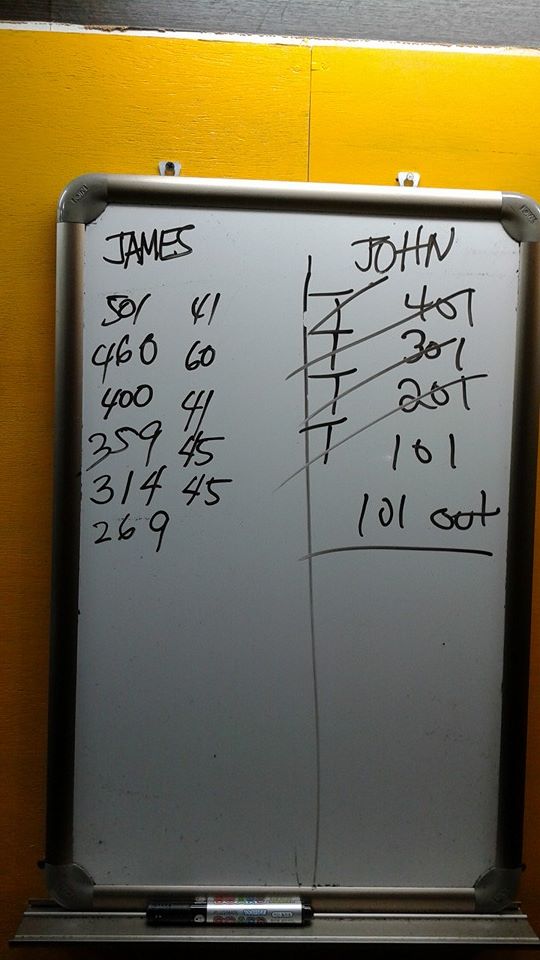 JAMES
501 41
460 60
400 41
359 45
314 45
269
JOHN
T
T 401
T 301
T 201
T 101
101 out